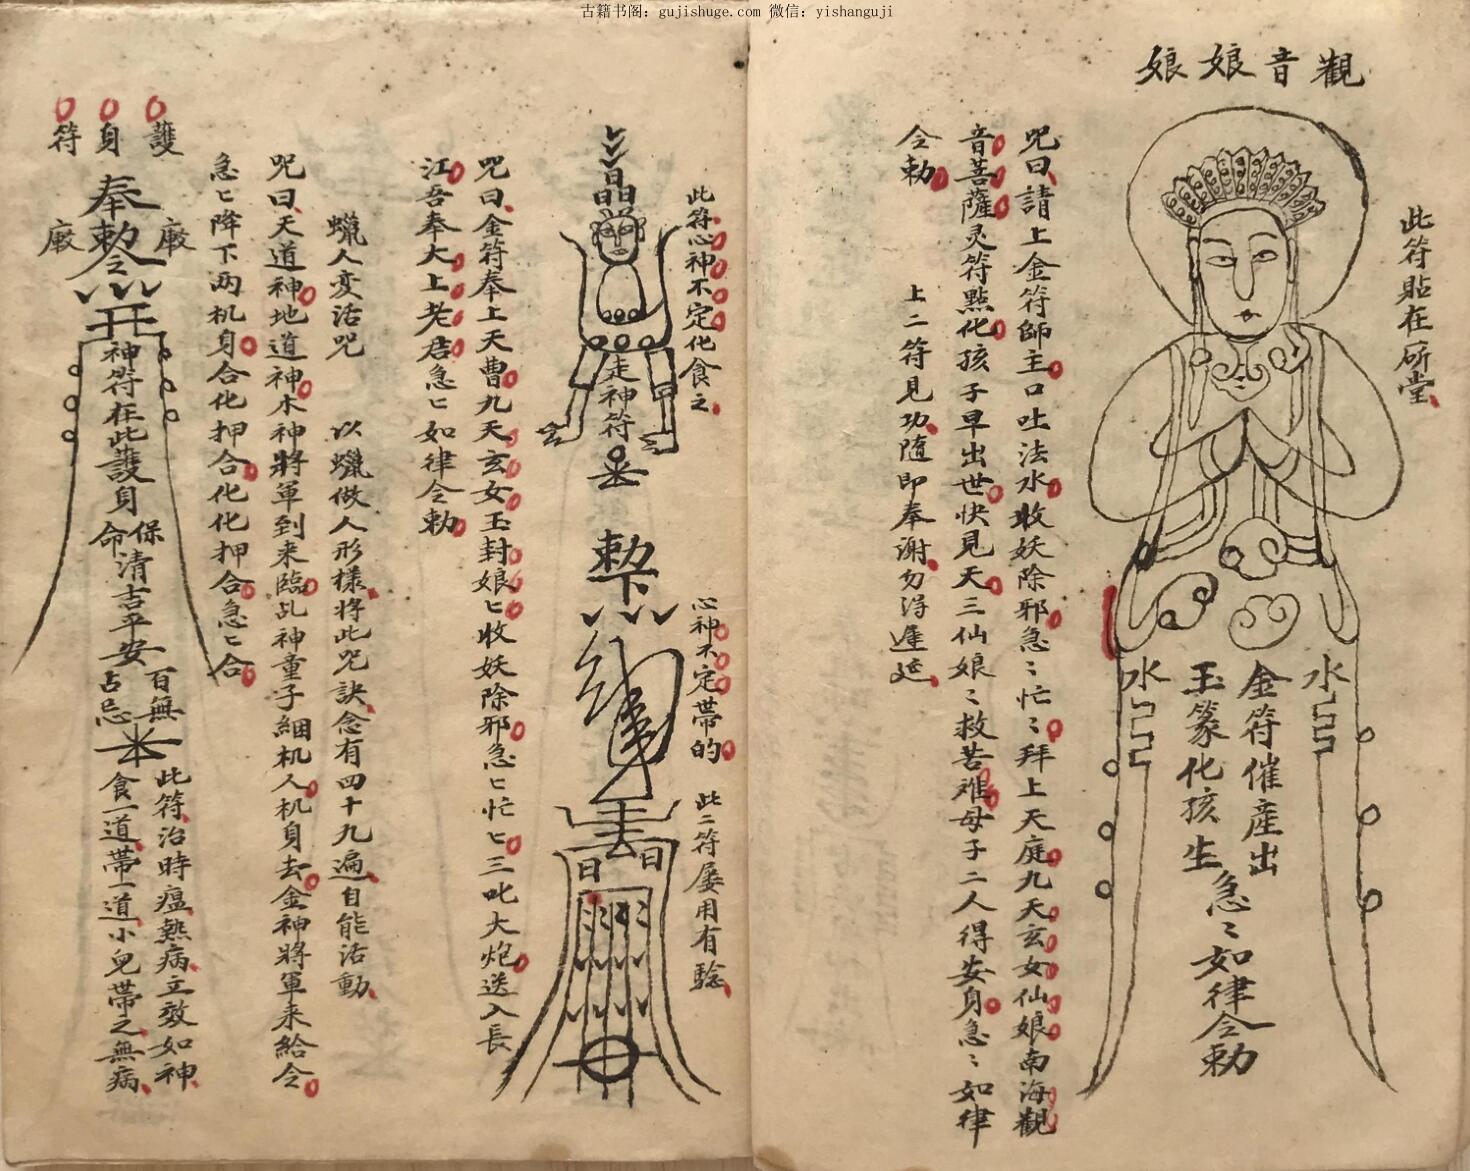 古籍书阁：gujishuge.com 微信：yishanguji
觀音娘娘
此符貼在研堂
水
金符催產出
玉篆化孩生
水
急〻如律令勅
咒曰請上金符師主口吐法水收妖除邪急〻忙〻拜上天庭九天玄女仙娘南海觀
音菩薩灵符點化孩子早出世快見天三仙娘〻救苦难母子二人得安身急〻如律
令勅
上二符見功隨即奉謝勿得遲延
此符心神不定化食之
走神符
心神不定帶的
此二符屡用有驗
敕下
日日
咒曰金符奉上天曹九天玄女玉封娘〻收妖除邪急〻忙〻三叱大炮送入長
江吾奉大上老君急〻如律令勅
蠟人变活咒
以蠟做人形樣將此咒訣念有四十九遍自能活動
咒曰天道神地道神木神將軍到来臨乩神童子綑机人机身去金神將軍来給令
急〻降下两机身合化押合化化押合急〻合
護身符
奉勅令
神符在此護身
保命
清吉平安
百無占忌
此符治時瘟熱病立效如神
食一道帶一道小兒帶之無病